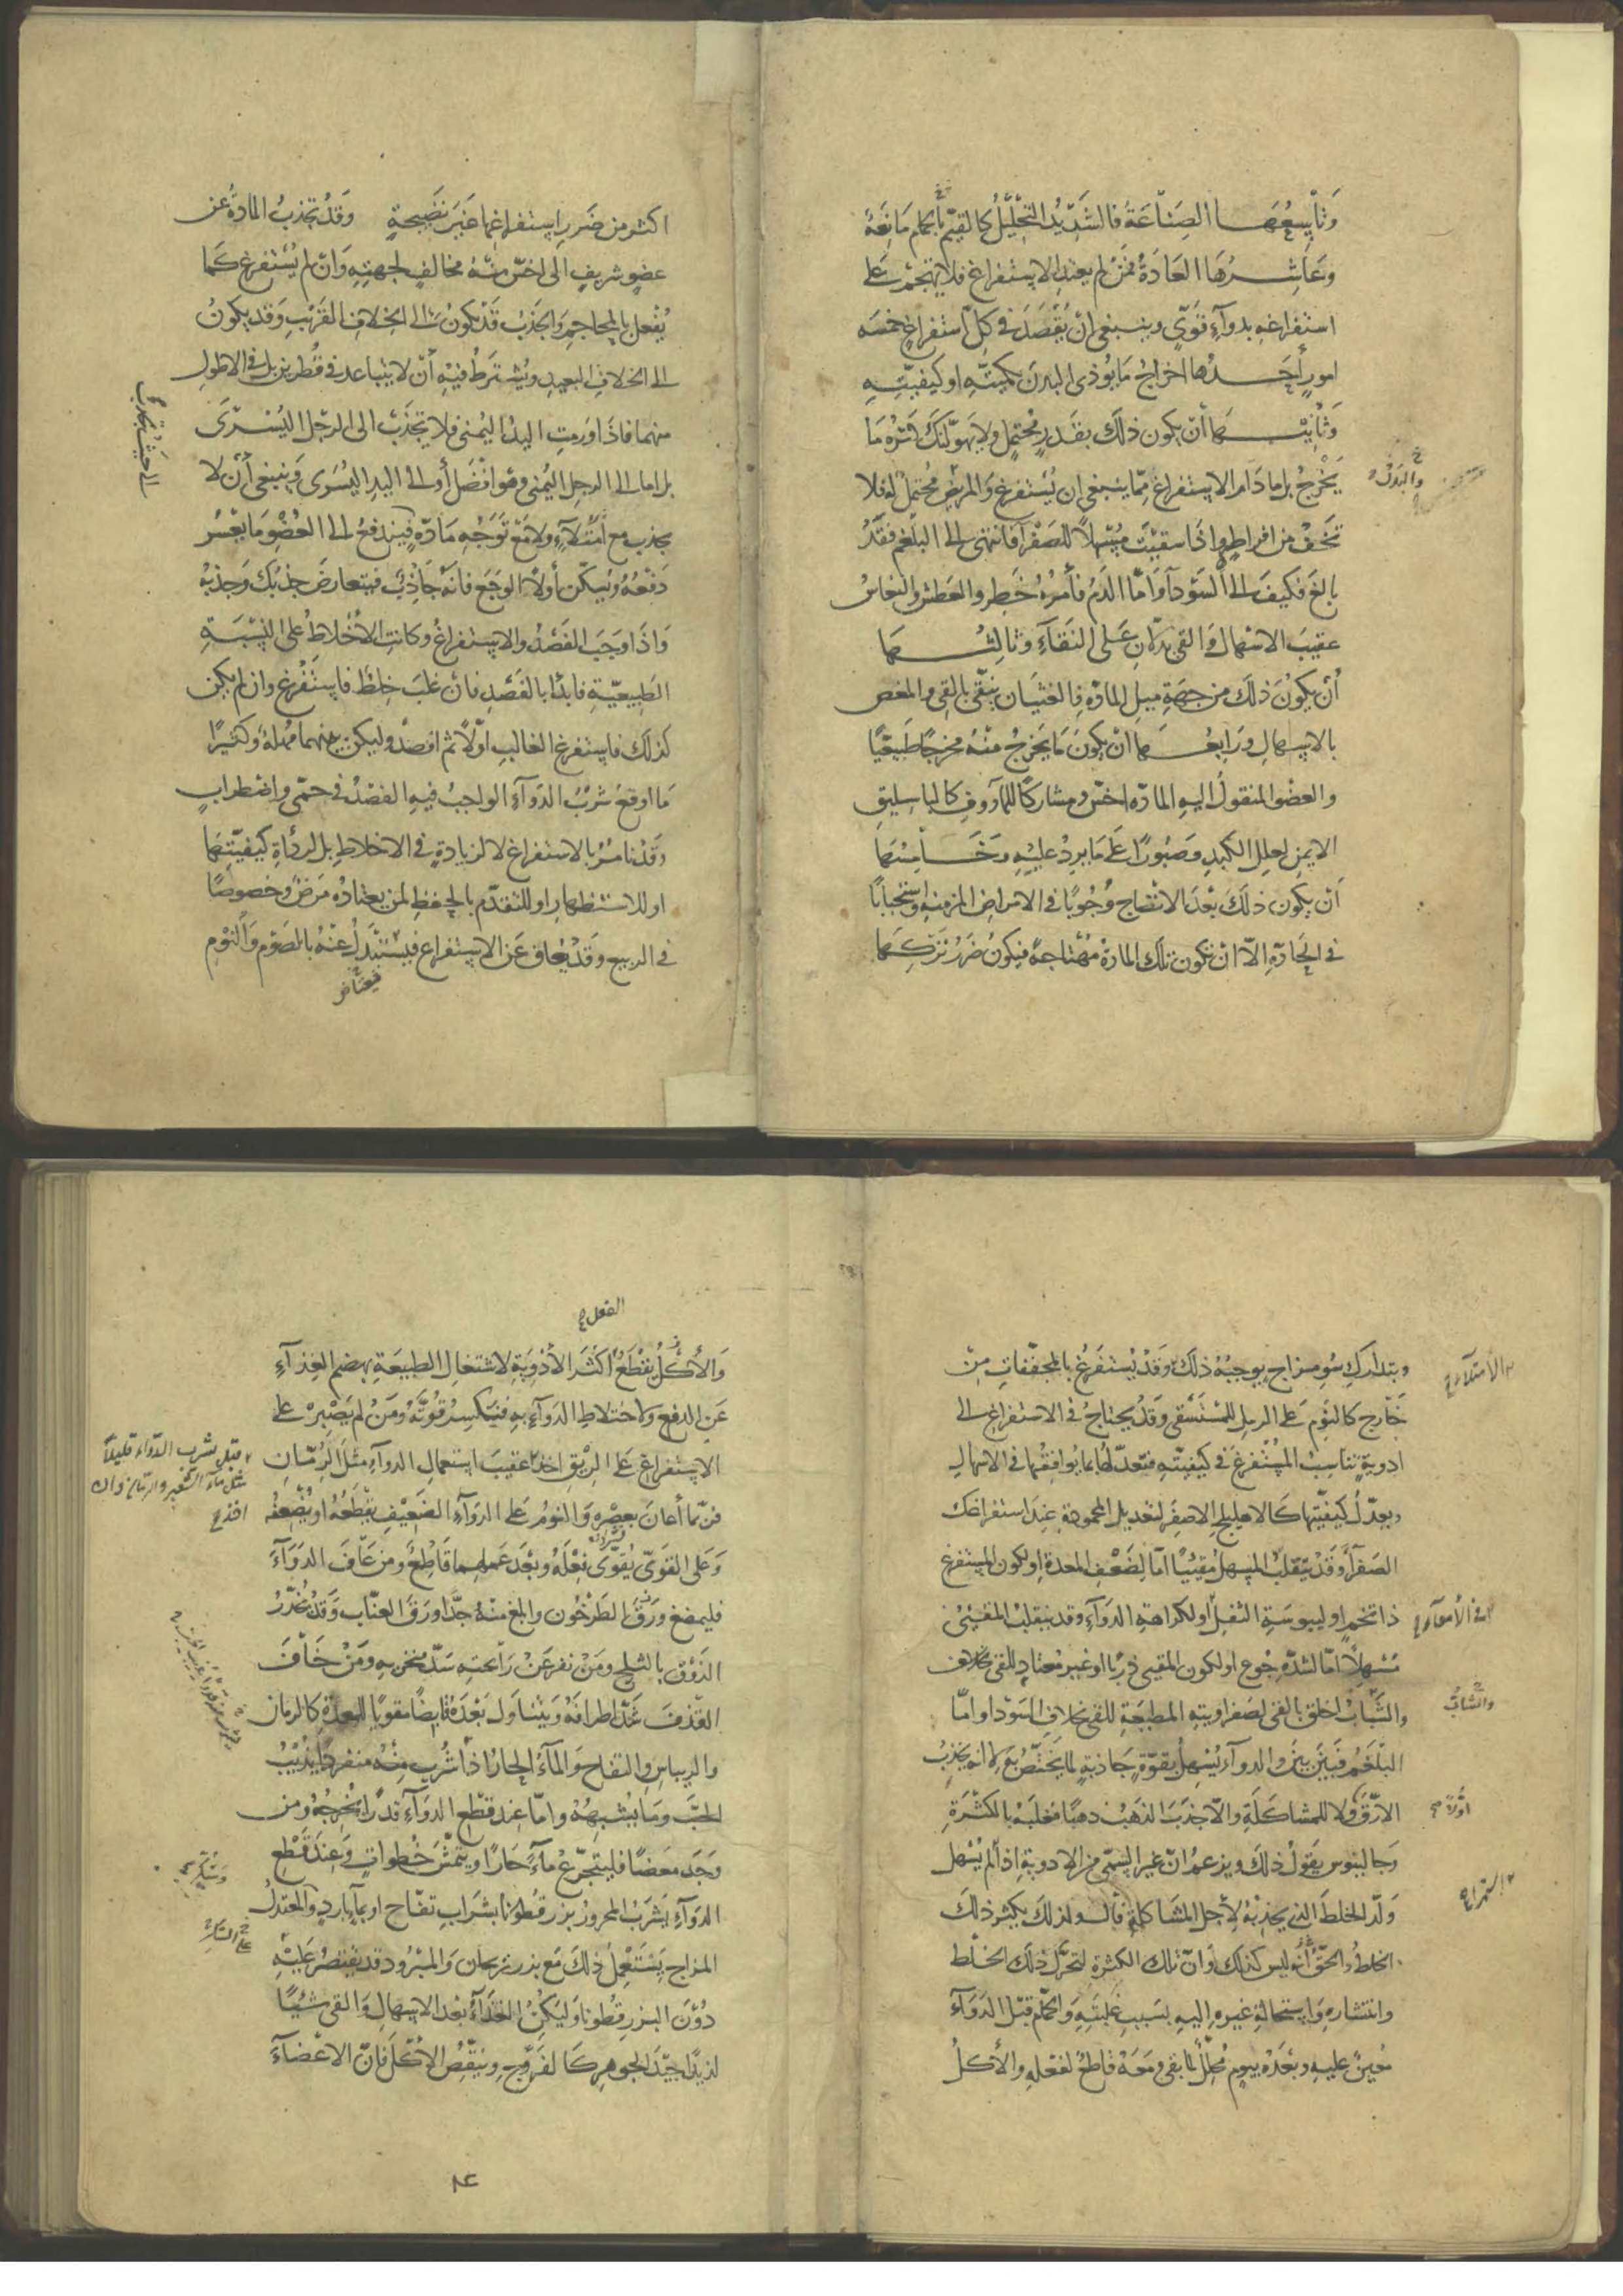 وتاسعها الصناعة فالشديدة التحليل كالقيم بالحمام مانعة
وعاشرها العادة فمن لم يعتد الاستفراغ فلا يتهجم على
استفراغه بدواء قوي وينبغي ان يقصد في كل استفراغ خمسه
امور احدها اخراج ما يوذي البدن بكميته او كيفيته
وثانيها ان يكون ذلك بقدر محتمل ولا يهولنك كثره ما
يخرج بل ما دام الاستفراغ مما ينبغي ان يستفرغ والمريض محتمل له فلا
والبدن
تخف من افراطه واذا سقيت مسهلا للصفرا فانتهى الى البلغم فقد
بالغ فكيف الى السودآ واما الدم فامره خطر والعطش والنعاس
عقيب الاسهال والقي يدلان على النقآء وثالثها
أن يكون ذلك من جهة ميل المادة فالغثيان ينقى بالقي والمغص
بالاسهال ورابعها ان يكون ما يخرج منه مخرجا طبيعيا
والعضو المنقول اليه الماده اخس ومشاركا للمأووف كالباسليق
الايمن لعلل الكبد وصبورا على ما يرد عليه وخامستها
ان يكون ذلك بعد الانضاج وجوبا في الامراض المزمنه واستحبابا
في الحادة الا ان تكون تلك المادة مهتاجة فيكون ضرر تركها
اكثر من ضرر استفراغها غير نضيجة وقد تجذب المادة عن
عضو شريف الى اخس منه مخالف لجهته وان لم يستفرغ كما
يفعل بالمحاجم والجذب قد يكون الى الخلاف القريب وقد يكون
الى الخلاف البعيد ويشترط فيه أن لا يتباعد في قطرين بل في الاطول
منهما فاذا ورمت اليد اليمنى فلا تجذب الى الرجل اليسرى
بل اما الى الرجل اليمنى وهو افضل أو الى اليد اليسرى وينبغي أن لا
يجذب مع امتلآء ولا مع توجه مادة فيندفع الى العضو ما يعسر
دفعه ويسكن أولا الوجع فانه جاذب فيتعارض جذبك وجذبه
واذا وجب الفصد والاستفراغ وكانت الاخلاط على النسبة
الطبيعية فابدأ بالفصد فان غلب خلط فاستفرغ وان لم يكن
كذلك فاستفرغ الغالب اولا ثم افصد وليكن بينهما مهلة وكثيرا
ما اوقع شرب الدوآء الواجب فيه الفصد في حمى واضطراب
وقد نامر بالاستفراغ لا لزيادة في الاخلاط بل لرداة كيفيتها
او للاستظهار او للتقدم بالحفظ لمن يعتاده مرض وخصوصا
في الربيع وقد يعاق عن الاستفراغ فيستبدل عنه بالصوم والنوم
وبتدارك سوء مزاج يوجبه ذلك وقد يستفرغ بالمجففات من
الامتلآء
خارج كالنوم على الرمل للمستسقي وقد يحتاج في الاستفراغ الى
ادوية تناسب المستفرغ في كيفيته فتعدلها بما يوافقها في الاسهال
ويعدل كيفيتها كالاهليلج الاصفر لتعديل المحمودة عند استفراغك
الصفرآ وقد ينقلب المسهل مقيئا اما لضعف المعدة او لكون المستفرغ
ذا تخم او ليبوسة الثفل او لكراهة الدوآء وقد ينقلب المقيئ
في الامعآء
مسهلا اما لشدة جوع او لكون المقيي ذربا او غير معتاد للقي
والشباب اخلق بالقي لصفراويته المطبعة للقي بخلاف السودا واما
والشاب
البلغم فبين بين والدوآء يسهل بقوة جاذبة لما يختص به لا انه يجذب
الارق ولا للمشاكلة والا جذب الذهب ذهبا مغلبه بالكثرة
وجالينوس يقول ذلك ويزعم ان غير السمي من الادوية اذا لم يسهل
ولد الخلط الذي يجذبه لاجل المشاكلة قال ولذلك يكثر ذلك
الخلط والحق انه ليس كذلك وان تلك الكثرة لتحرك ذلك الخلط
وانتشاره واستحالة غيره اليه بسبب غلبته والحمام قبل الدوآء
معين عليه وبعده بيوم محلل لما بقي ومعه قاطع لفعله والأكل
الفعل
والأكل يقطع اكثر الأدوية لاشتغال الطبيعة بهضم الغذآء
عن الدفع ولاختلاط الدوآء به فتنكسر قوته ومن لم يصبر على
الاستفراغ على الريق اخذ عقيب استعمال الدوآء مثل الرمان
قبل شرب الدواء قليلا
مثل ماء الشعير والرمان
فربما أعان بعصره والنوم على الدوآء الضعيف يقطعه او يضعفه
وعلى القوي يقوي فعله وبعد عملهما قاطع ومن عاف الدوآء
فليمضغ ورق الطرخون وابلغ منه جدا ورق العناب وقد يخدر
الذوق بالثلج ومن نفر عن رائحته سد منخريه ومن خاف
القذف شد اطرافه ويتناول بعده قابضا مقويا للمعدة كالرمان
والريباس والتفاح والمآء الحار اذا شرب منه منفردا يذيب
الحب وما يشبهه واما عند قطع الدوآء قدرا يخرجه ومن
وجد مغصا فليتجرع مآء حارا ويتمش خطوات وعند قطع
الدوآء يشرب المحرور بزر قطونا بشراب تفاح او بمآء بارد والمعتدل
المزاج يستعمل ذلك مع بزر ريحان والمبرود قد يقتصر عليه
دون البزر قطونا وليكن الغذآء بعد الاسهال والقي شيئا
لذيذا جيد الجوهر كالفروج وينقص الأكل فان الاعضآء